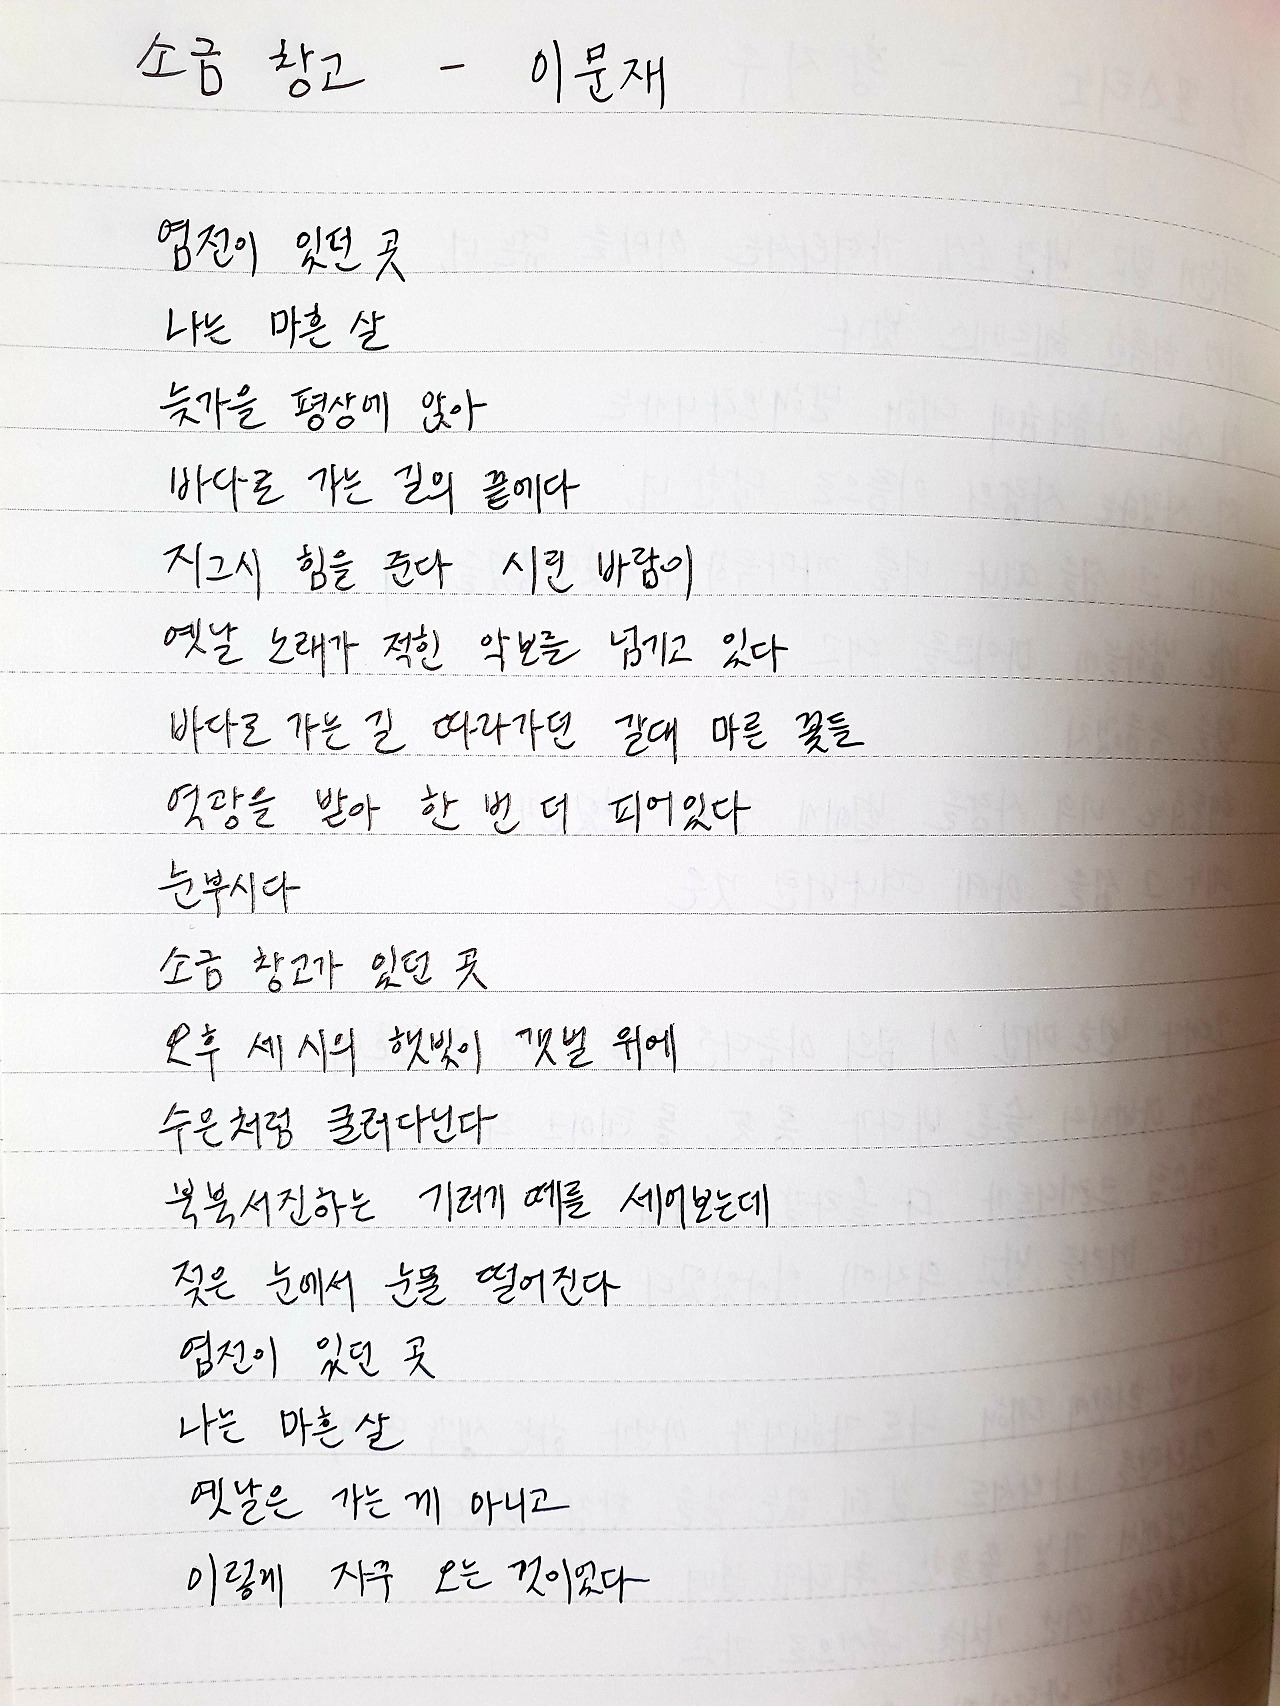 소금 창고 - 이문재
염전이 있던 곳
나는 마흔 살
늦가을 평상에 앉아
바다로 가는 길의 끝에다
지그시 힘을 준다 시린 바람이
옛날 노래가 적힌 악보를 넘기고 있다
바다로 가는 길 따라가던 갈대 마른 꽃들
역광을 받아 한 번 더 피어있다
눈부시다
소금 창고가 있던 곳
오후 세 시의 햇빛이 갯벌 위에
수은처럼 굴러다닌다
북북서진하는 기러기 떼를 세어보는데
젖은 눈에서 눈물 떨어진다
염전이 있던 곳
나는 마흔 살
옛날은 가는 게 아니고
이렇게 자꾸 오는 것이었다